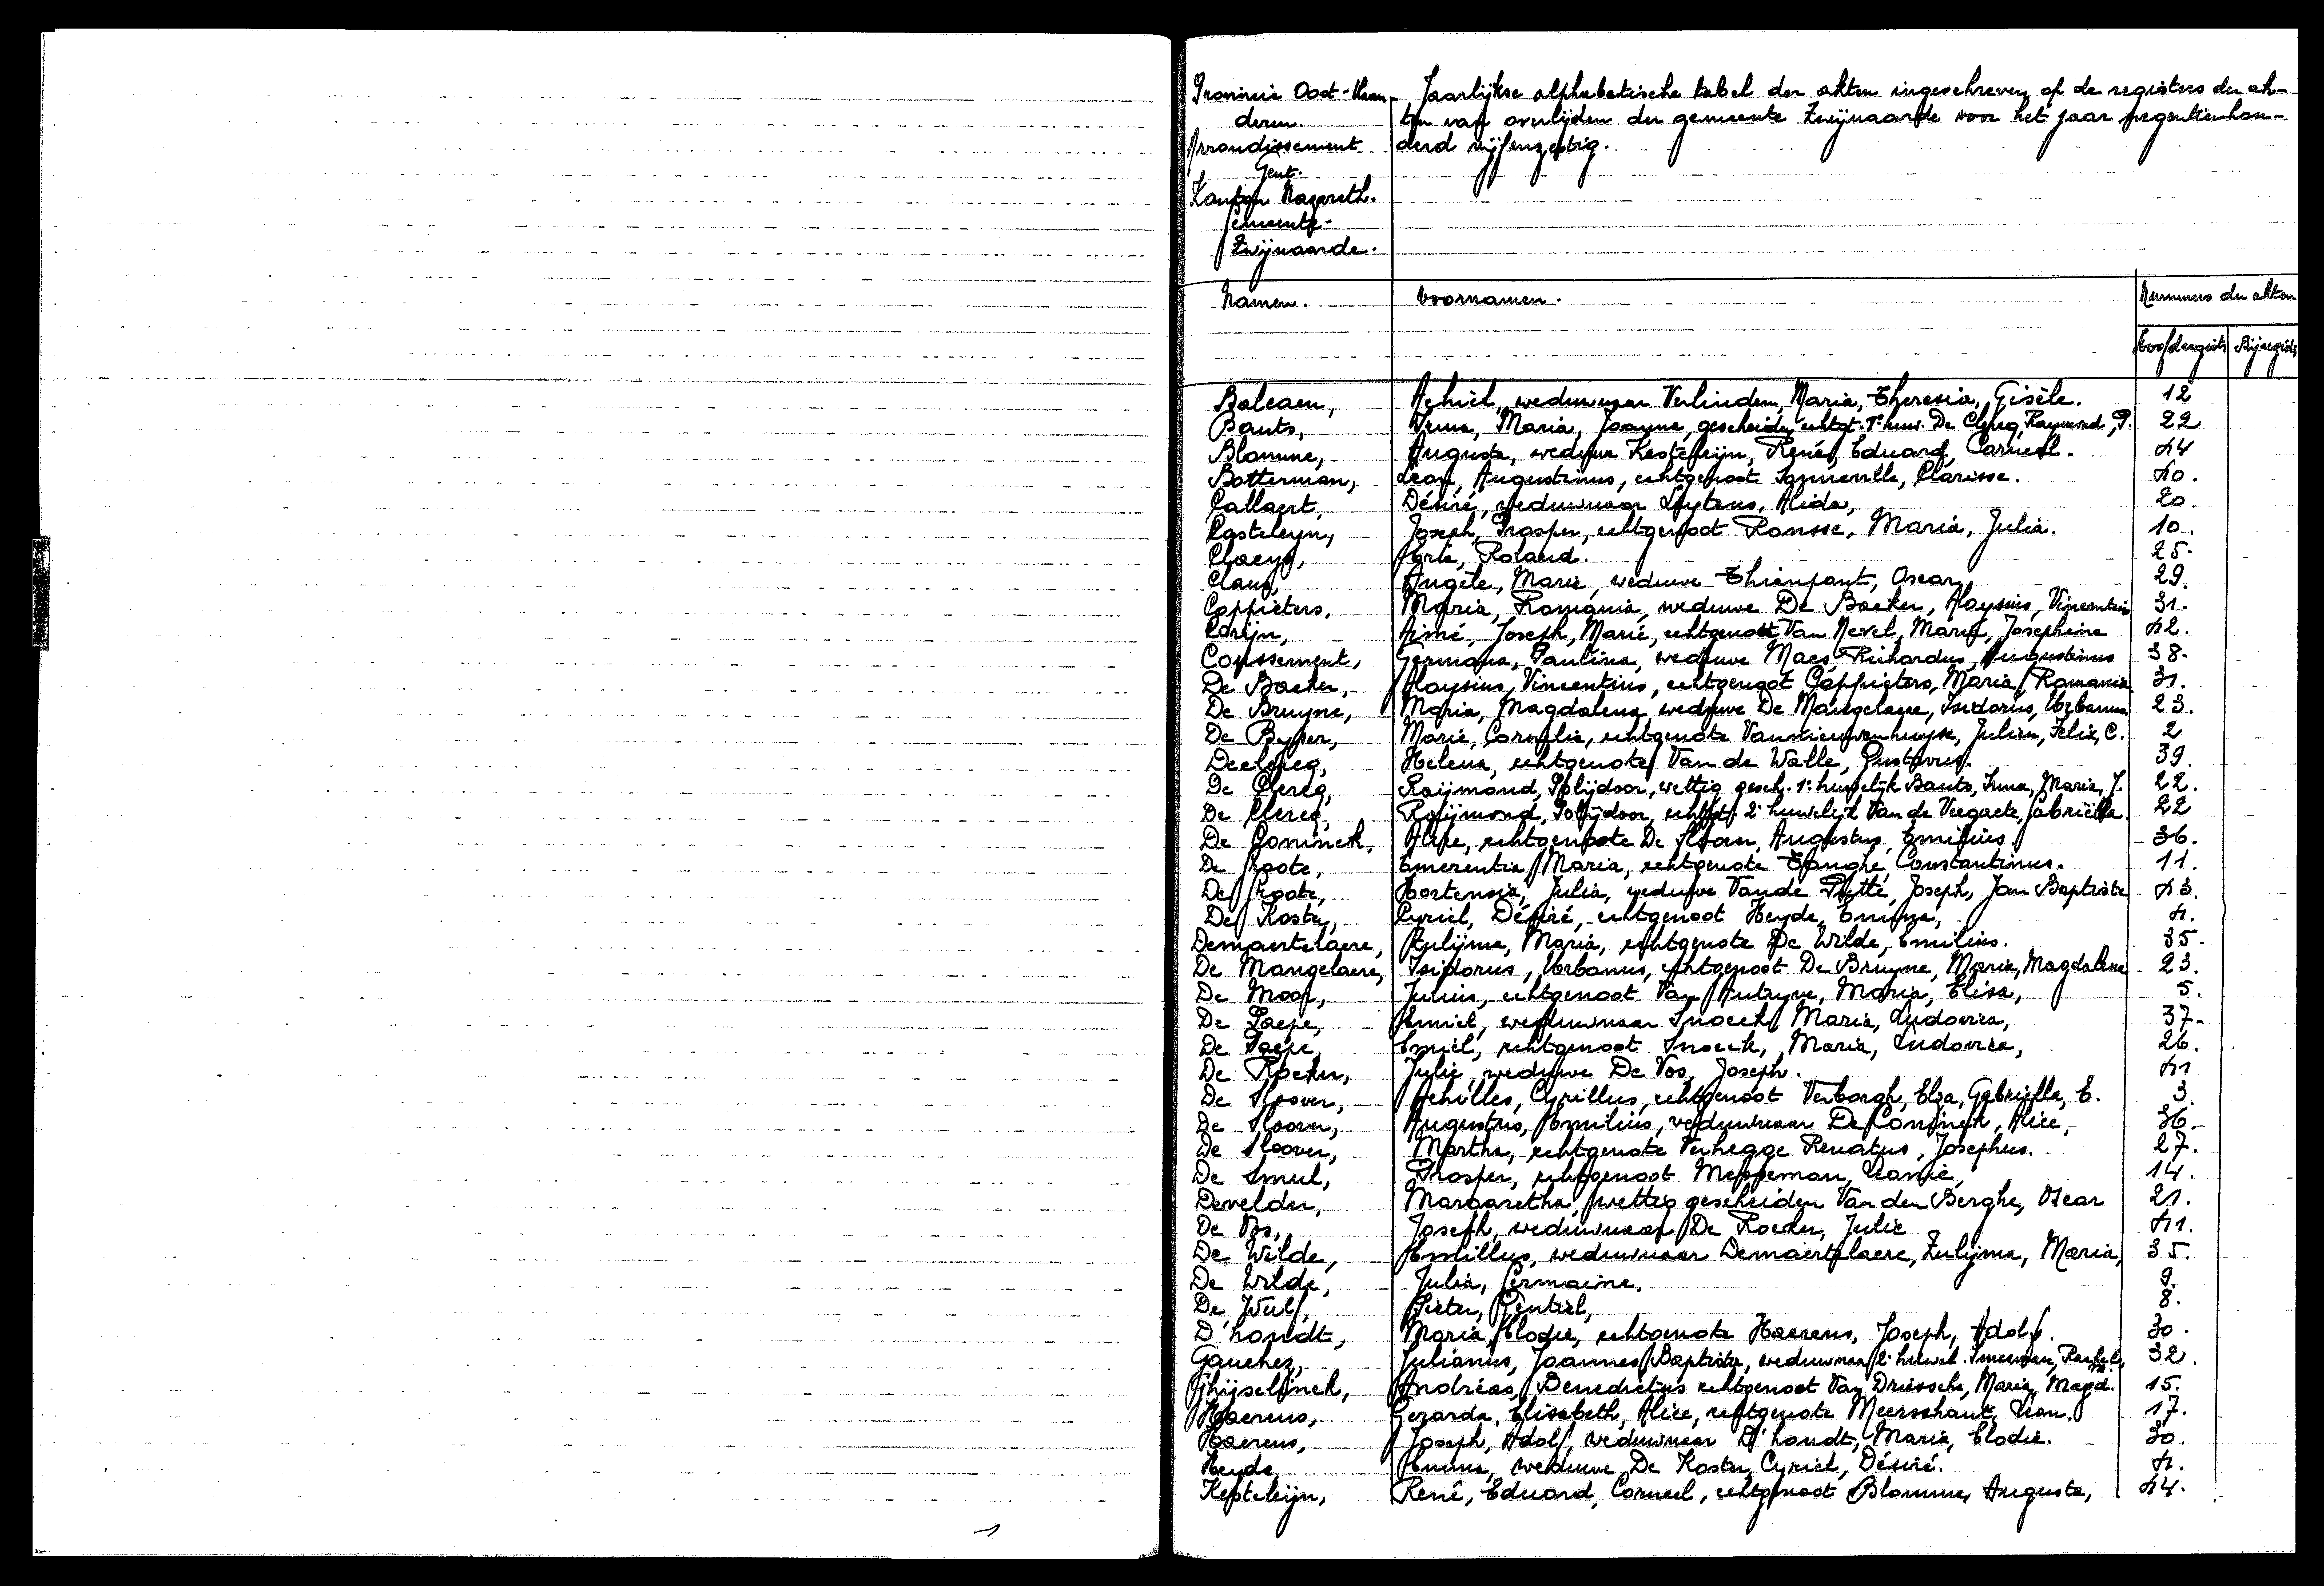 Provincie Oost-Vlaan-
deren.
Arrondissement
Gent.
Kanton Nazareth.
Gemeente
Zwijnaarde.
Jaarlijkse alphabetische tabel der akten ingeschreven op de registers der ak-
ten van overlijden der gemeente Zwijnaarde voor het jaar negentienhon-
derd vijfenzestig.
Namen. Voornamen. Nummers der akten
Hoofdregist. Bijregist.
Balcaen, Achiel, weduwnaar Verlinden, Maria, Theresia, Gisèle. 12
Bauts, Irma, Maria, Joanna, gescheiden echtgt. 1e huw. De Clercq, Raymond, P. 22
Blomme, Augusta, weduwe Kesteleijn, René, Eduard, Corneel. 44
Botterman, Leon, Augustinus, echtgenoot Sonneville, Clarisse. 40.
Callaert, Désiré, weduwnaar Luytens, Alida, 20.
Casteleyn, Joseph, Prosper, echtgenoot Ronsse, Maria, Julia. 10.
Claeys, Joris, Roland. 25.
Claus, Angèle, Marie, weduwe Thienpont, Oscar, 29.
Coppieters, Maria, Romania, weduwe De Backer, Aloysius, Vincentius 31.
Corijn, Aimé, Joseph, Marie, echtgenoot Van Nevel, Maria, Josephine 42.
Coussement, Germana, Paulina, weduwe Maes, Richardus, Augustinus 38.
De Backer, Aloysius, Vincentius, echtgenoot Coppieters, Maria, Romania 31.
De Bruyne, Maria, Magdalena, weduwe De Mangelaere, Isidorus, Urbanus 23.
De Buyser, Marie, Cornelie, echtgenote Vannieuwenhuyse, Julien, Felix, C. 2
Declercq, Helena, echtgenote Van de Walle, Gustavus. 39.
De Clercq, Raijmond, Polijdoor, wettig gesch. 1e huwelijk Bauts, Irma, Maria, J. 22.
De Clercq, Raijmond, Polijdoor, echtgt. 2e huwelijk Van de Veegaete, Gabriëlla. 22
De Coninck, Alice, echtgenote De Sloover, Augustus, Emilius. 36.
De Groote, Emerentia, Maria, echtgenote Tanghé, Constantinus. 11.
De Groote, Hortensia, Julia, weduwe Vande Putte, Joseph, Jan Baptiste 43.
De Koster, Cyriel, Désiré, echtgenoot Heyde, Emma, 4.
Demaertelaere, Zulijma, Maria, echtgenote De Wilde, Emilius. 35.
De Mangelaere, Isidorus, Urbanus, echtgenoot De Bruyne, Maria, Magdalena 23.
De Moor, Julius, echtgenoot Van Autryve, Maria, Elisa, 5.
De Paepe, Emiel, weduwnaar Snoeck, Maria, Ludovica, 37.
De Paepe, Emiel, echtgenoot Snoeck, Maria, Ludovica, 26.
De Roeker, Julie, weduwe De Vos, Joseph. 41
De Sloover, Achilles, Cyrillus, echtgenoot Terborgh, Elza, Gabriëlla, E. 3.
De Sloover, Augustus, Emilius, weduwnaar De Coninck, Alice, 36.
De Sloover, Martha, echtgenote Verhegge Renatus, Josephus. 27.
De Smul, Prosper, echtgenoot Meppeman, Leonie, 14.
Develder, Margaretha, wettig gescheiden Van den Berghe, Oscar 21.
De Vos, Joseph, weduwnaar De Roeker, Julie 41.
De Wilde, Emillus, weduwnaar Demaertelaere, Zulijma, Maria, 35.
De Wilde, Julia, Germaine. 9.
De Wulf, Pieter, Gentiel, 8.
D'hondt, Maria, Elodie, echtgenote Haerens, Joseph, Adolf. 30.
Gauchez, Julianus, Joannes, Baptista, weduwnaar 2e huwel. Smeesman, Rachel, 32.
Ghijselinck, Andréas, Benedictus echtgenoot Van Driessche, Maria, Magd. 15.
Haerens, Gerarda, Elisabeth, Alice, echtgenote Meerschaut, Leon. 17.
Haerens, Joseph, Adolf, weduwnaar D'hondt, Maria, Elodie. 30.
Heyde, Emma, weduwe De Koster, Cyriel, Désiré. 4.
Kesteleijn, René, Eduard, Corneel, echtgenoot Blomme, Augusta, 44.
1